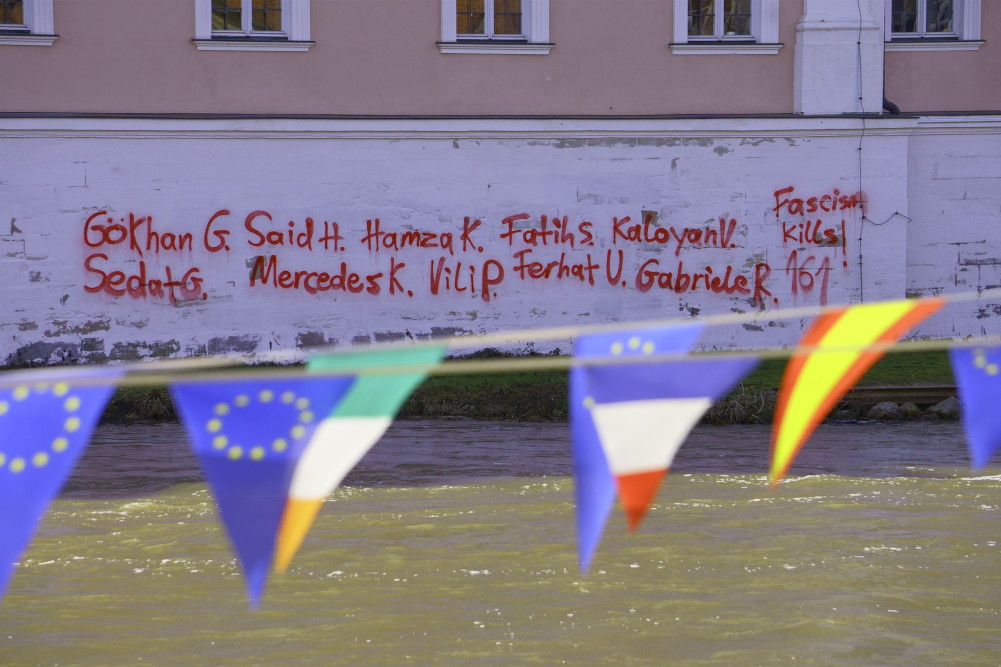 Gökhan G. Said H. Hamza K. Fatih S. Kaloyan V.
Sedat G. Mercedes K. Vili P. Ferhat U. Gabriele R.
Fascism
kills!
161